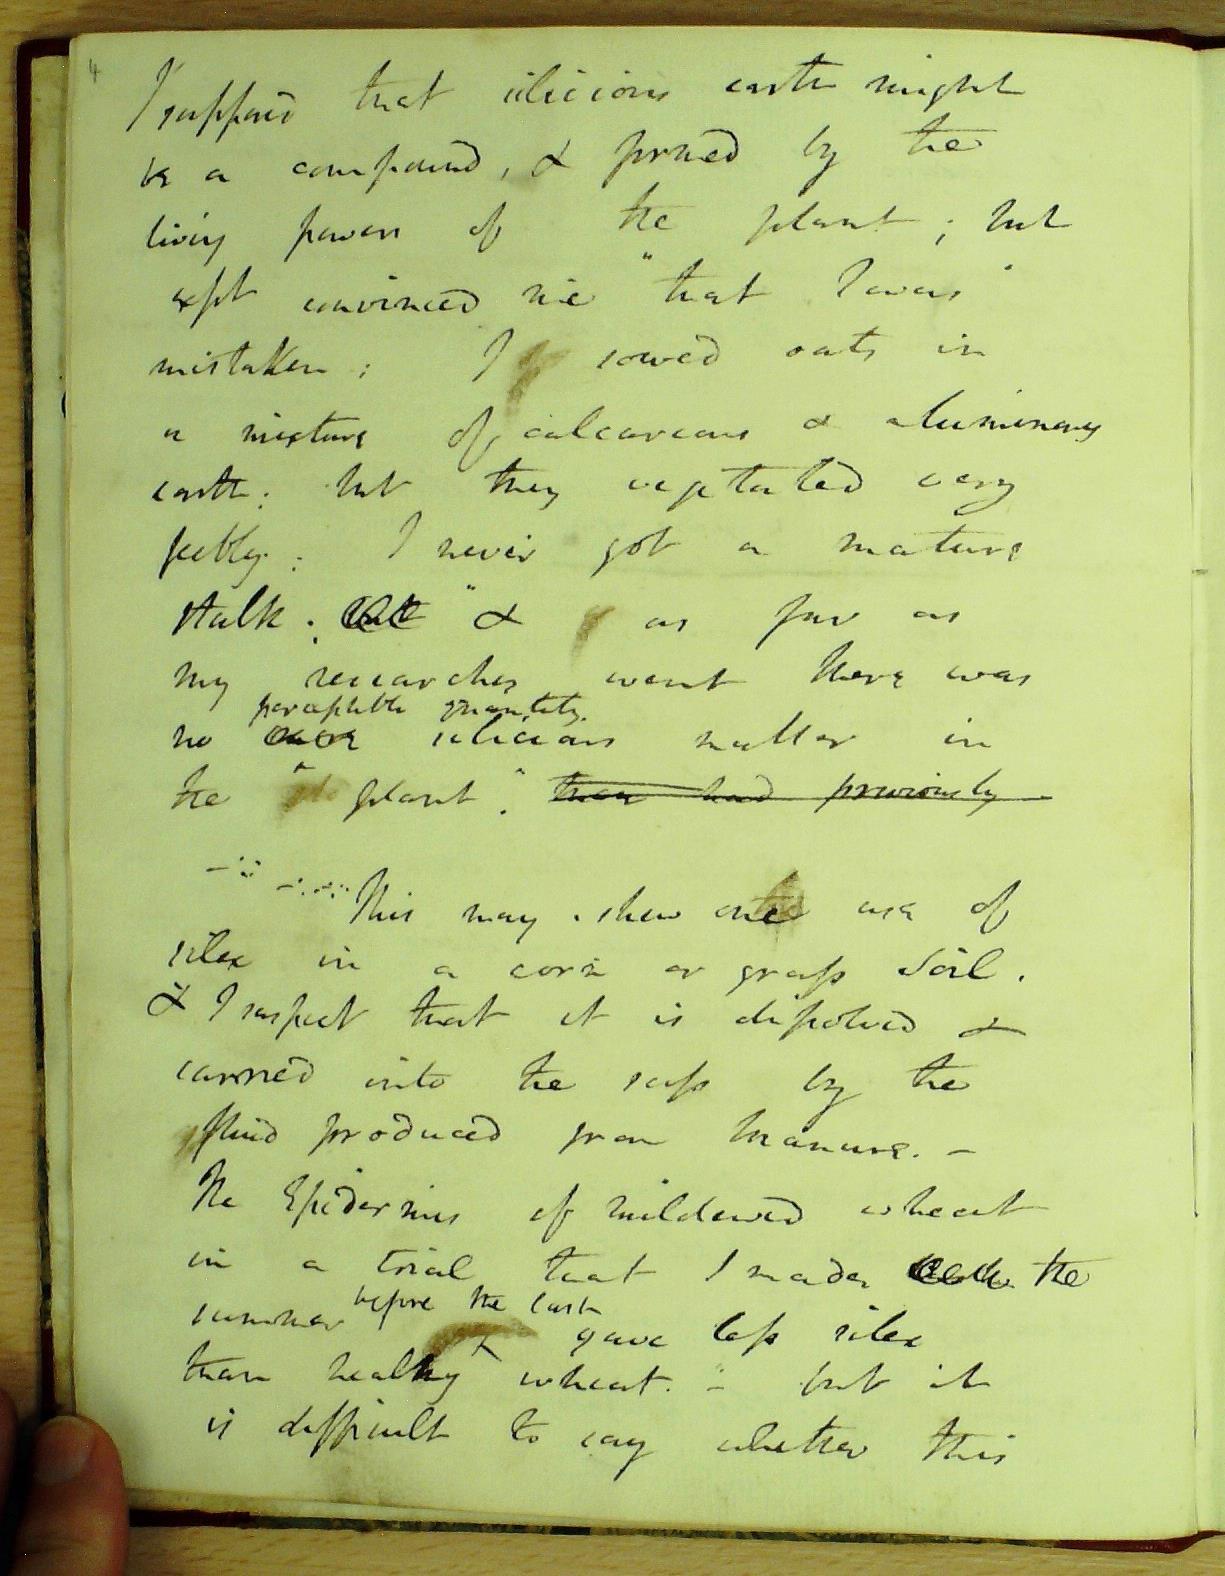 4
I supposed that silicious earth might
be a compound, & formed by the
living powers of the plant; but
expt convinced me "that I was"
mistaken: I sowed oats in
a mixture of calcareous & aluminous
earth: but they vegetated very
feebly: I never got a mature
stalk. & as far as
my researches went there was
perceptible quantity
no silicious matter in
the plant. then had previously
This may shew one use of
silex in a corn or grass soil.
& I suspect that it is dissolved &
carried into the sap by the
fluid produced from manure. -
The Epidermis of mildewed wheat
in a trial that I made the
before the last
summer gave less silex
than healthy wheat. - but it
is difficult to say whether this